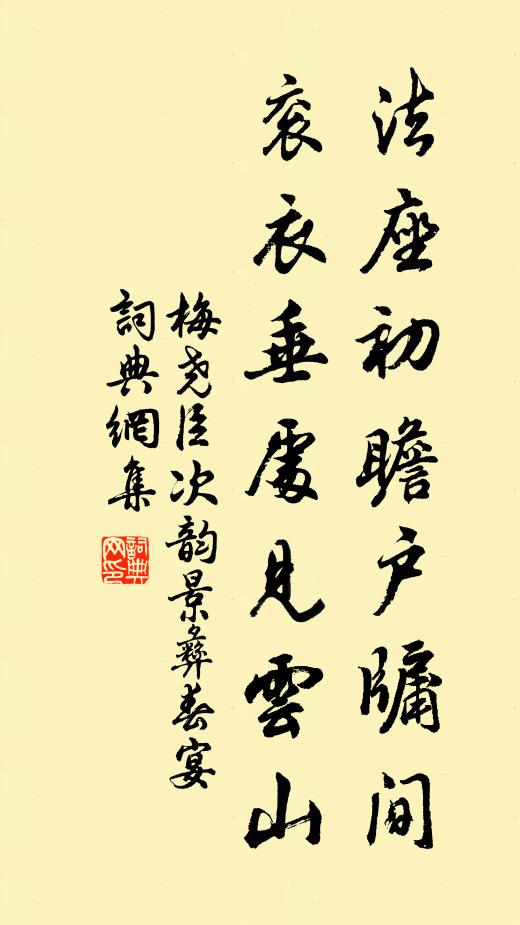 法座初瞻户牖间
衮衣垂处见雲山
梅尧臣次韵景彝春宴
詞典網集
詞典
网印